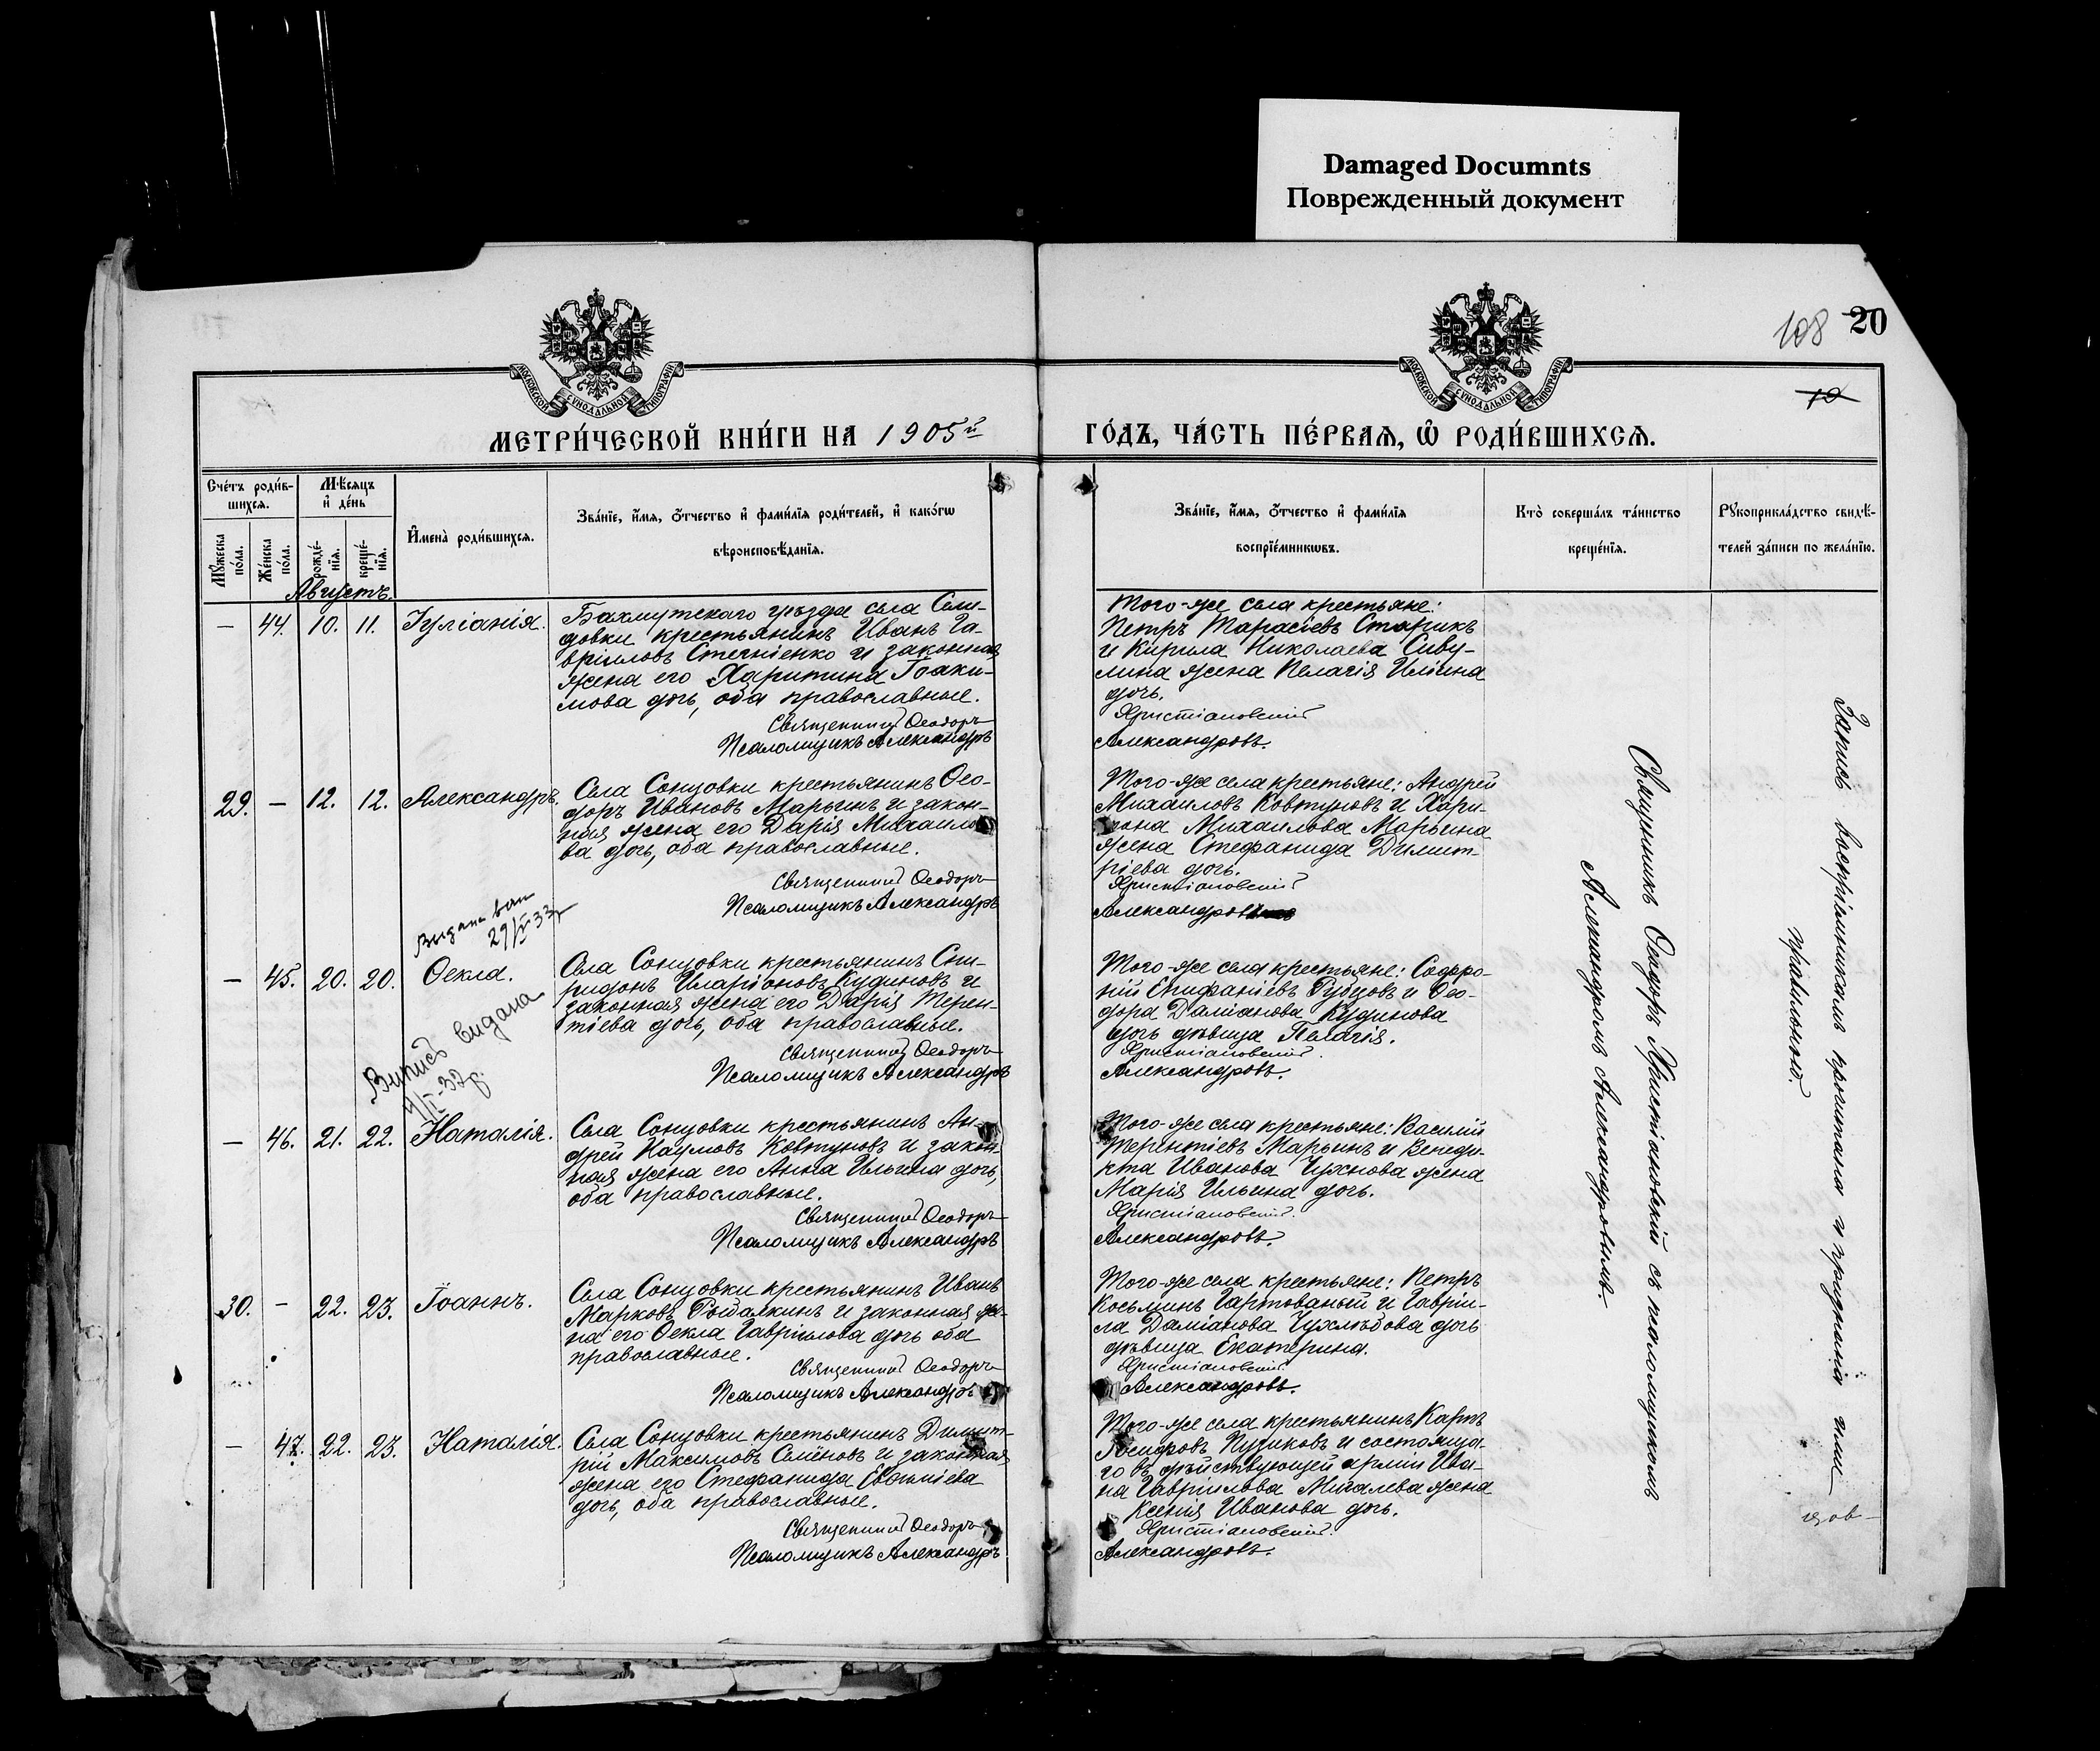 Damaged Documnts
Поврежденный документ
108 20
10
МОСКОВСКОЙ СУНОДАЛЬНОЙ ТИПОГРАФІИ
МОСКОВСКОЙ СУНОДАЛЬНОЙ ТИПОГРАФІИ
МЕТРИ́ЧЕСКОЙ КНИ́ГИ НА 1905й
ГО́ДЪ, ЧА́СТЬ ПЕ́РВАЯ, Ѡ РОДИ́ВШИХСЯ.
Сче́тъ роди́в-
шихся.
Мꙋ́жеска
по́ла.
Же́нска
по́ла.
Мѣ́сяцъ
и҆ де́нь
рожде́-
нїя.
креще́-
нїя.
И҆мена̀ роди́вшихся.
Зва́нїе, и҆́мя, ѻ҆́тчество и҆ фами́лїя роди́телей, и҆ како́гѡ
вѣроисповѣ́данїя.
Зва́нїе, и҆́мя, ѻ҆́тчество и҆ фами́лїя
воспрїе́мникѡвъ.
Кто̀ соверша́лъ та́инство
креще́нїя.
Рꙋкоприкла́дство свидѣ́-
телей за́писи по жела́нїю.
Августъ.
— 44. 10. 11. Іуліанія.
Бахмутскаго уѣзда села Сели-
довки крестьянинъ Иванъ Га-
вріиловъ Стегніенко и законная
жена его Харитина Іоаки-
мова дочь, оба православные.
Священникъ Ѳеодоръ
Псаломщикъ Александръ
Того-же села крестьяне:
Петръ Тарасіевъ Старикъ
и Кирила Николаева Сиву-
лина жена Пелагія Иліина
дочь.
Христіановскій
Александровъ.
29. — 12. 12. Александръ.
Села Сонцовки крестьянинъ Ѳео-
доръ Ивановъ Марьинъ и закон-
ная жена его Дарія Михаило-
ва дочь, оба православные.
Священникъ Ѳеодоръ
Псаломщикъ Александръ
Того-же села крестьяне: Андрей
Михаиловъ Ковтуновъ и Хари-
тона Михаилова Марьина
жена Стефанида Димит-
ріева дочь.
Христіановскій
Александровъ
29/ 33
— 45. 20. 20. Ѳекла.
Села Сонцовки крестьянинъ Спи-
ридонъ Иларіоновъ Кудиновъ и
законная жена его Дарія Терен-
тіева дочь, оба православные.
Священникъ Ѳеодоръ
Псаломщикъ Александръ
Того-же села крестьяне: Софро-
ній Епифаніевъ Рубцовъ и Ѳео-
дора Даміанова Кудинова
дочь дѣвица Пелагія.
Христіановскій.
Александровъ.
Випись видана
-37 р.
— 46. 21. 22. Наталія.
Села Сонцовки крестьянинъ Ан-
дрей Наумовъ Ковтуновъ и закон-
ная жена его Анна Ильина дочь,
оба православные.
Священникъ Ѳеодоръ
Псаломщикъ Александръ
Того-же села крестьяне: Василій
Терентіевъ Марьинъ и Венеди-
кта Иванова Чухнова жена
Марія Ильина дочь.
Христіановскій.
Александровъ.
30. — 22. 23. Іоаннъ.
Села Сонцовки крестьянинъ Иванъ
Марковъ Рыбалкинъ и законная же-
на его Ѳекла Гавріилова дочь оба
православные.
Священникъ Ѳеодоръ
Псаломщикъ Александръ
Того-же села крестьяне: Петръ
Косьминъ Гартованый и Гавріи-
ла Даміанова Чухлѣбова дочь
дѣвица Екатерина.
Христіановскій.
Александровъ.
— 47. 22. 23. Наталія.
Села Сонцовки крестьянинъ Димит-
рій Максимовъ Семёновъ и законная
жена его Стефанида Евѳиміева
дочь, оба православные.
Священникъ Ѳеодоръ
Псаломщикъ Александръ
Того-же села крестьянинъ Карпъ
Іосифовъ Пузиковъ и состояща-
го въ дѣйствующей арміи Ива-
на Гавріилова Мигалева жена
Ксенія Иванова дочь.
Христіановскій.
Александровъ.
Священникъ Ѳеодоръ Христіановскій съ псаломщикомъ
Александромъ Александровымъ.
Запись воспріемникамъ прочитана и признана ими
правильною.